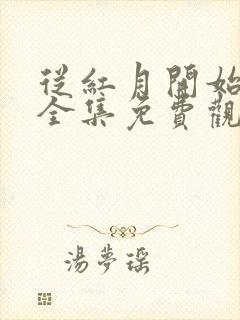 從紅月開始
全集免費觀
湯夢瑶